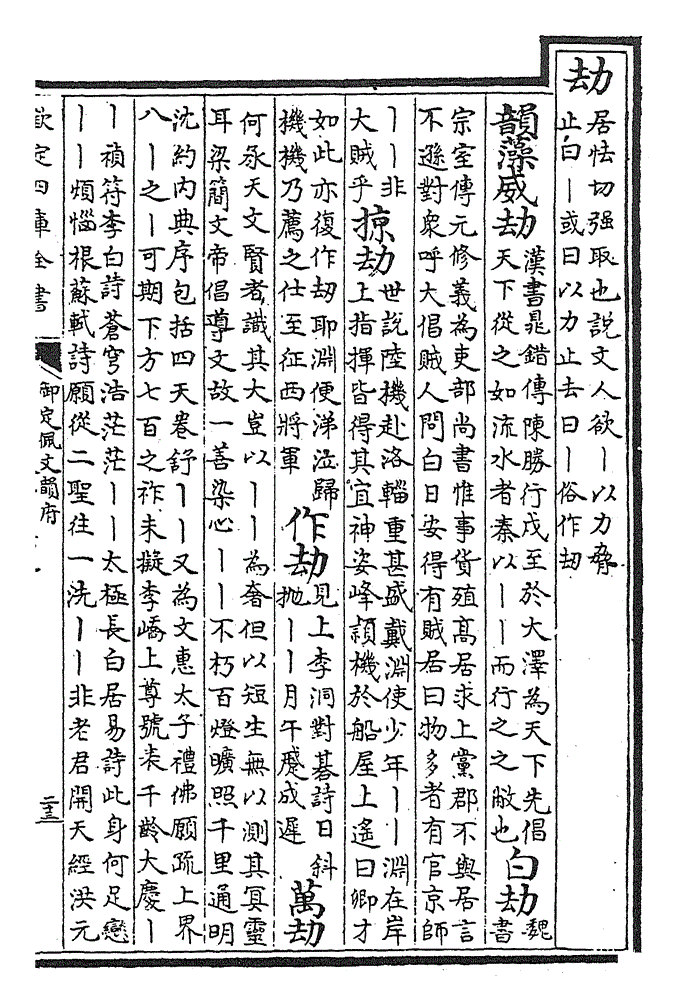 劫
居怯切强取也說文人欲丨以力脅
止曰丨或曰以力止去曰丨俗作刧
韻藻威劫
漢書晁錯傳陳勝行戍至於大澤為天下先倡
天下從之如流水者秦以丨丨而行之之敝也
白劫
魏
書
宗室傳元修義為吏部尚書惟事貨殖髙居求上黨郡不與居言
不遜對衆呼大倡賊人問白日安得有賊居曰物多者有官京師
丨丨非
大賊乎
掠劫
世說陸機赴洛輜重甚盛戴淵使少年丨丨淵在岸
上指揮皆得其宜神姿峰頴機於船屋上遙曰卿才
如此亦復作刧耶淵便涕泣歸
機機乃薦之仕至征西將軍
作劫
見上李洞對碁詩日斜
抛丨丨月午蹙成遲
萬劫
何承天文賢者識其大豈以丨丨為奢但以短生無以測其冥靈
耳梁簡文帝倡導文故一善染心丨丨不朽百燈曠照千里通明
沈約内典序包括四天卷舒丨丨又為文惠太子禮佛願疏上界
八丨之丨可期下方七百之祚未擬李嶠上尊號表千齡大慶丨
丨禎符李白詩蒼穹浩茫茫丨丨太極長白居易詩此身何足戀
丨丨煩惱根蘇軾詩願從二聖往一洗丨丨非老君開天經洪元
欽定四庫全書
御定佩文韻府
二十三